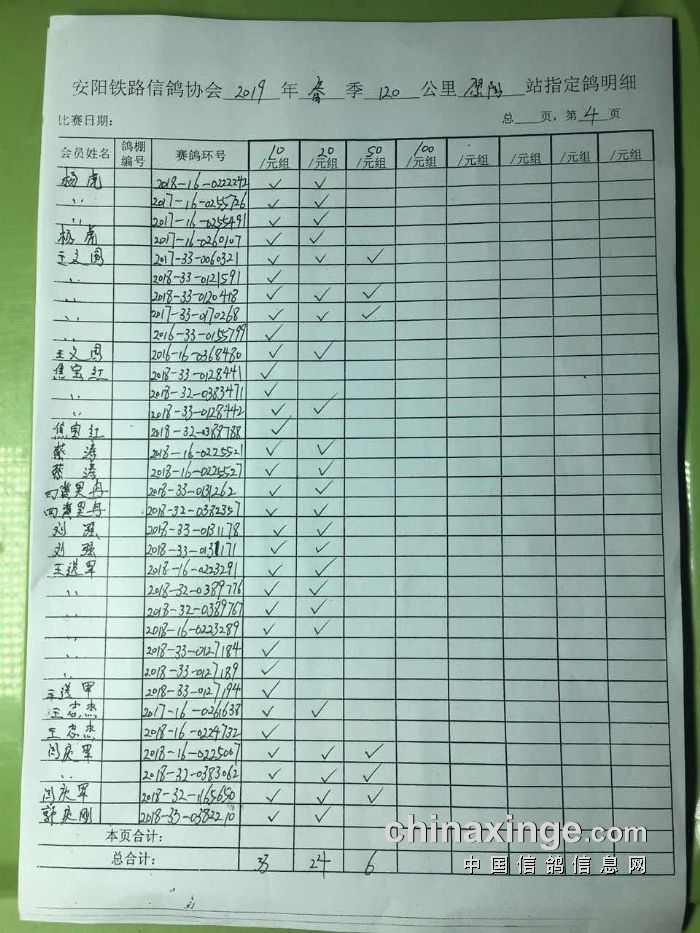 安阳铁路信鸽协会 2019 年 春 季 120 公里 原阳 站指定鸽明细
比赛日期: 总 页,第 4 页
会员姓名 鸽棚编号 赛鸽环号 10/元组 20/元组 50/元组 100/元组 /元组 /元组 /元组 /元组
杨虎 2018-16-0222242 ✓ ✓
〃 2017-16-0255726 ✓ ✓
〃 2017-16-0255491 ✓ ✓
杨虎 2017-16-0260107 ✓ ✓
王文国 2017-33-0060321 ✓ ✓ ✓
〃 2018-33-0121591 ✓
〃 2018-33-0120418 ✓ ✓ ✓
〃 2017-33-0170268 ✓ ✓ ✓
〃 2016-33-0155799 ✓
王文国 2016-16-0368480 ✓ ✓
焦宝红 2018-33-0128441 ✓
〃 2018-32-0383471 ✓
〃 2018-33-0128442 ✓ ✓
焦宝红 2018-32-0388788 ✓
蔡涛 2018-16-0225521 ✓ ✓
蔡涛 2018-16-0225527 ✓ ✓
2018-33-0131262 ✓ ✓
2018-32-0382357 ✓ ✓
刘强 2018-33-0131178 ✓ ✓
刘强 2018-33-0131171 ✓ ✓
王送军 2018-16-0223291 ✓ ✓
〃 2018-32-0389776 ✓ ✓
〃 2018-32-0389767 ✓ ✓
〃 2018-16-0223289 ✓ ✓
〃 2018-33-0127184 ✓
〃 2018-33-0127189 ✓
王送军 2018-33-0127194 ✓
王志杰 2017-16-0261638 ✓ ✓
王志杰 2018-16-0224732 ✓
闫庆军 2018-16-0225007 ✓ ✓ ✓
〃 2018-32-0383062 ✓ ✓ ✓
闫庆军 2018-32-1165650 ✓ ✓ ✓
郭庆刚 2018-33-0382210 ✓ ✓
本页合计:
总合计: 33 24 6
chinaxinge.com
中国信鸽信息网